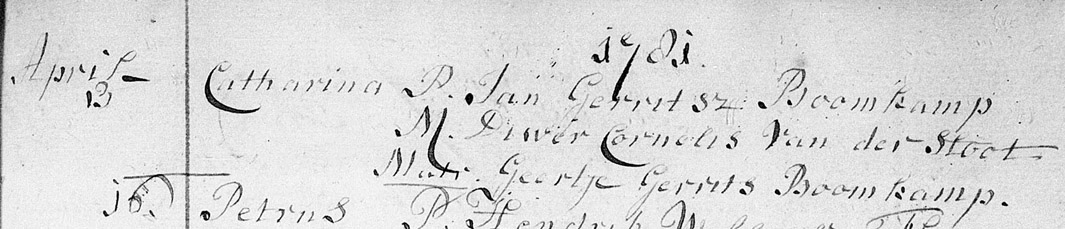 1781.
April
13 Catharina P. Jan Gerritsz Boomkamp
M. Diwer Cornelis Van der Stoot
Matr. Geertje Gerrits Boomkamp.
16. Petrus P. Hendrik